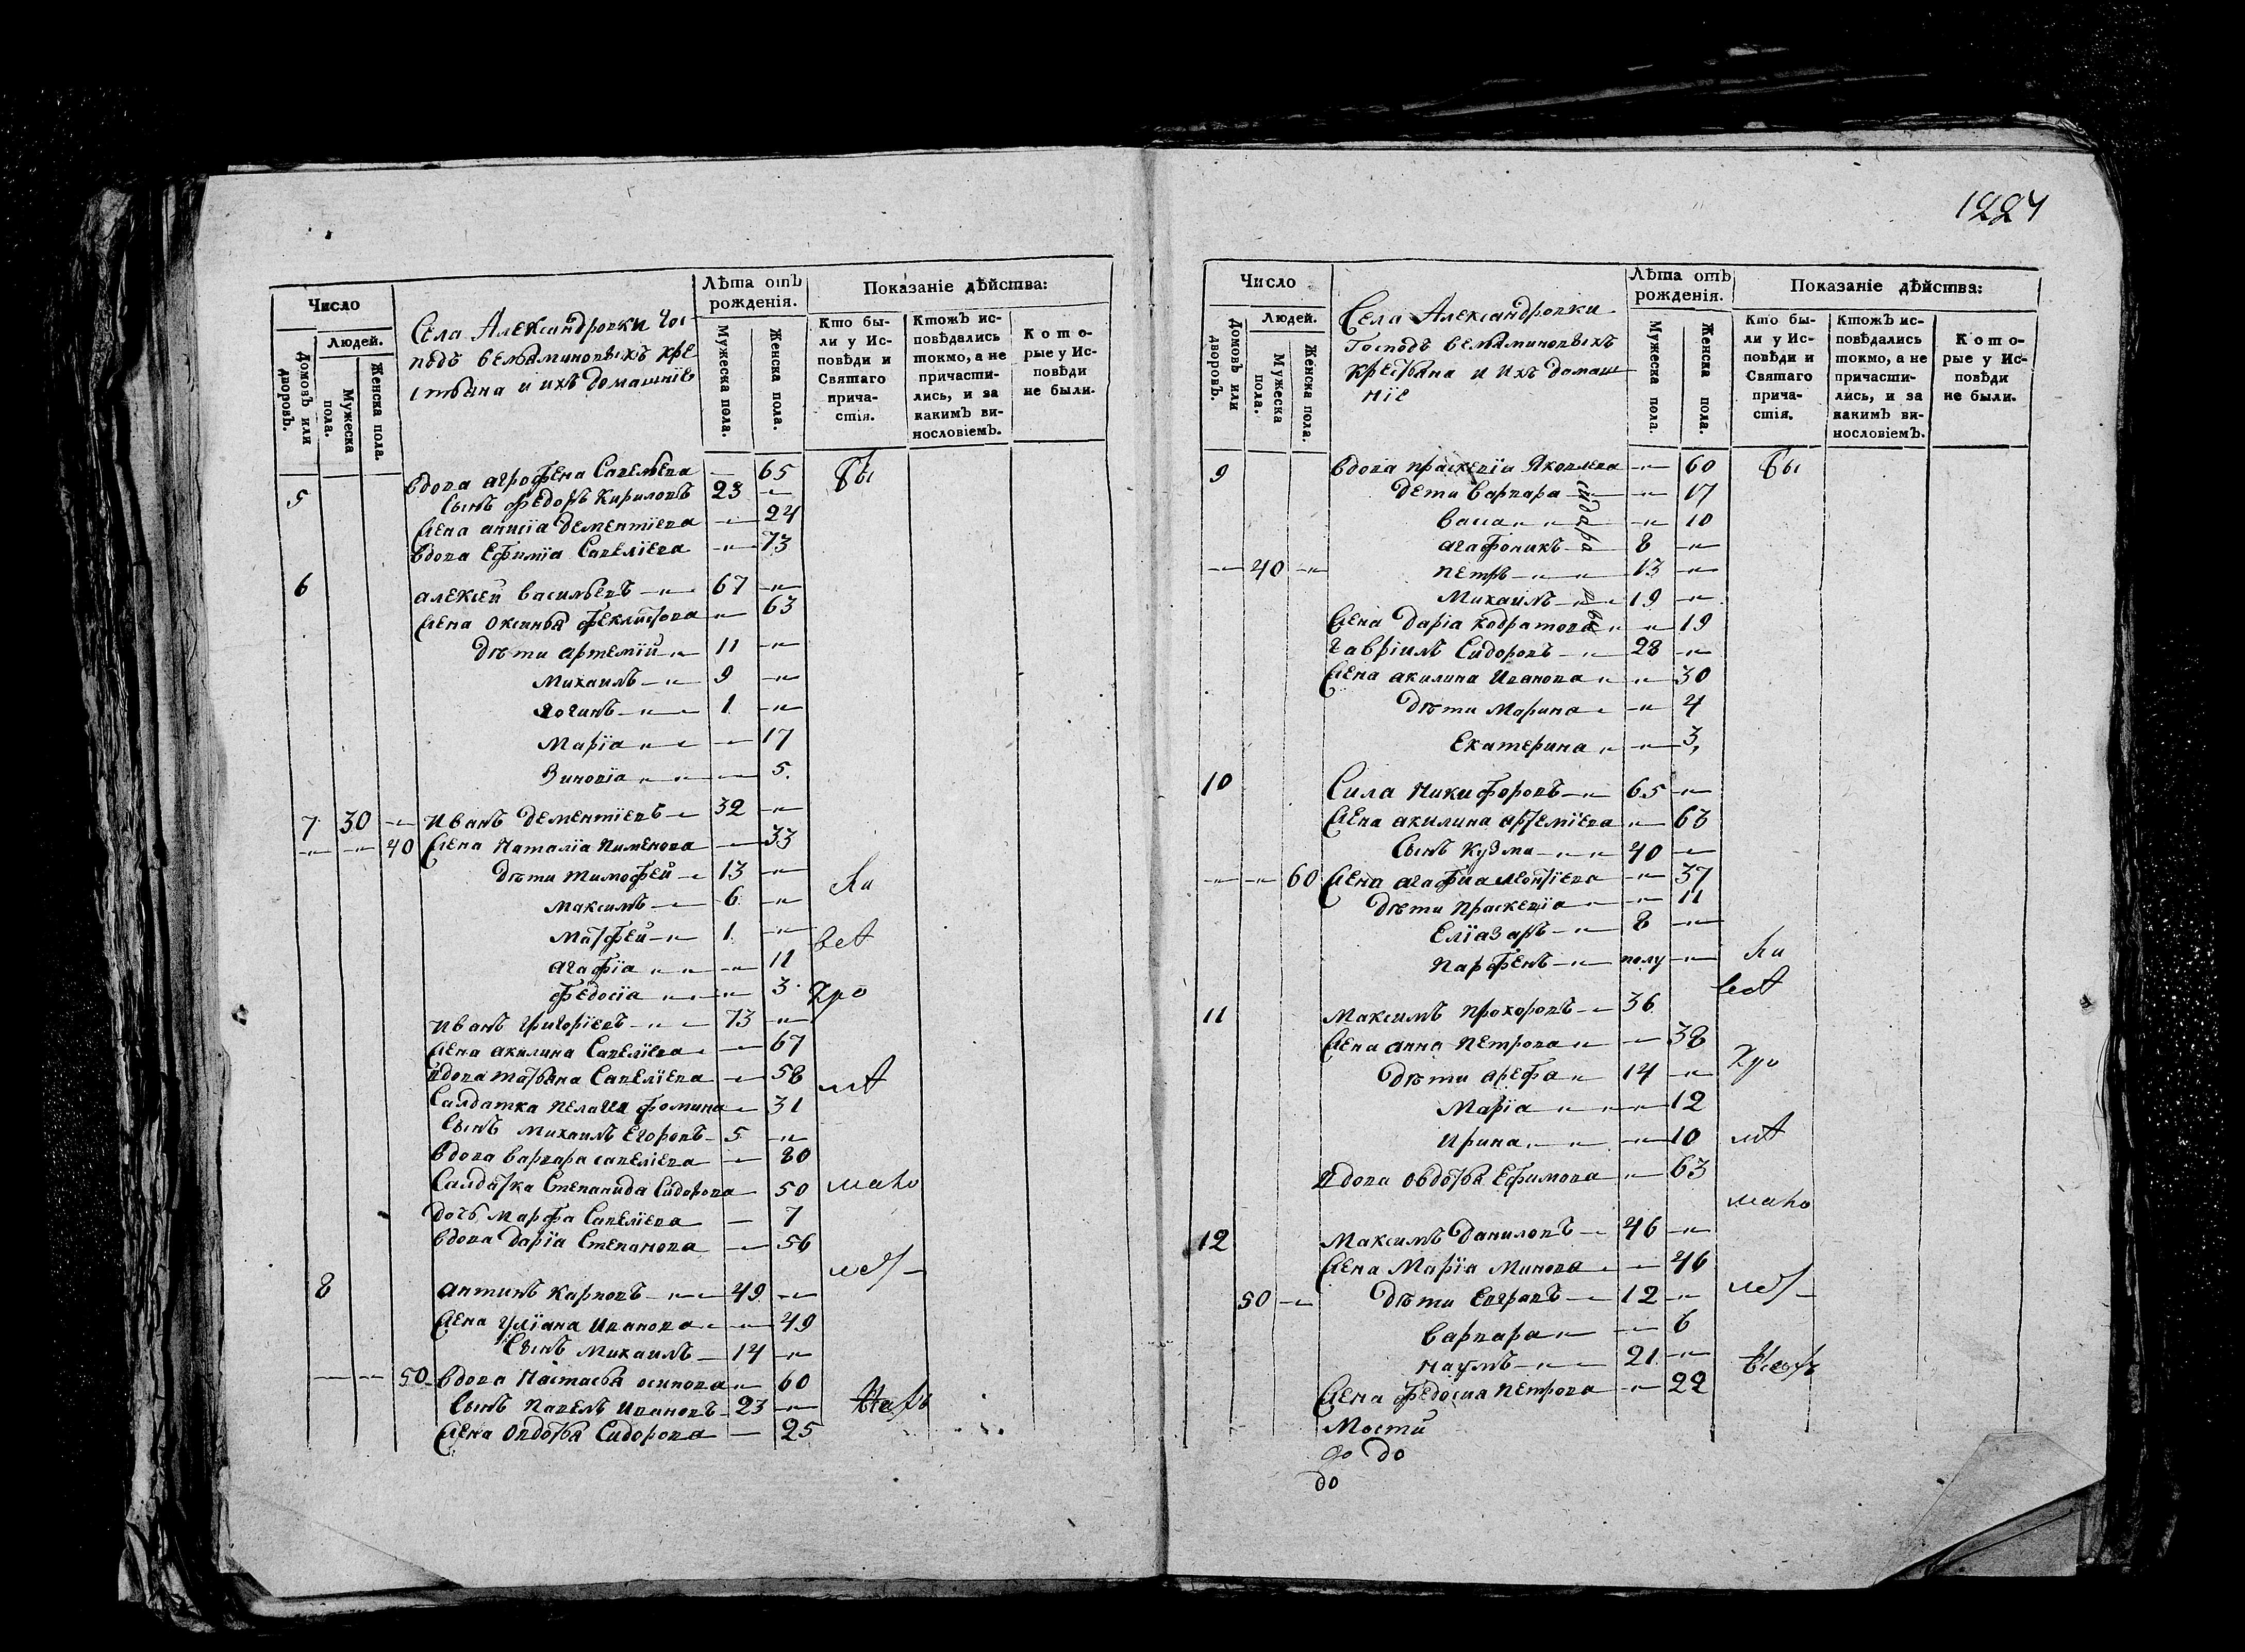 1224
Число
Людей.
Домовъ или дворовъ.
Мужеска пола.
Женска пола.
Села Александровки гос
подъ вельяминовыхъ кре
стьяна и ихъ домашнїе
Лѣта отъ рожденія.
Мужеска пола.
Женска пола.
Показаніе дѣйства:
Кто были у Исповѣди и Святаго причастія.
Ктожъ исповѣдались токмо, а не причастились, и за какимъ винословіемъ.
Которые у Исповѣди не были.
5 вдова агрофена Савельева — 65 бы
сынъ федоръ кириловъ 23 —
жена анисїа дементїева — 24
вдова Ефимїа Савелїева — 73
6 алексей васильевъ — 67 —
жена оксинья феклистова — 63
дѣти артемїй — 11 —
михаилъ — 9 —
логинъ — 1 —
марїа — 17
Зиновїа — 5.
7. 30 — иванъ дементїевъ — 32 —
— — 40 жена наталїа пименова — 33
дѣти тимофей — 13 —
максимъ — 6. —
матфей — 1. —
агафїа — 11
федосїа — 3.
иванъ григорїевъ — 73 —
жена акилина Савелїева — 67
вдова татьяна Савелїева — 58
Салдатка пелагеа фомина — 31
сынъ михаилъ егоровъ — 5 —
вдова варвара савелїева — 80
Салдатка Степанида Сидорова 50
дочь марфа Савелїева — 7
вдова дарїа Степанова — 56
8 антипъ карповъ — 49. —
жена улїана иванова — 49
сынъ михаилъ — 14 —
— — 50 вдова настасья осипова — 60
сынъ павелъ ивановъ — 23 —
жена овдотья Сидорова — 25
Число
Людей.
Домовъ или дворовъ.
Мужеска пола.
Женска пола.
Села Александровки
Господъ вельяминовыхъ
крестьяна и ихъ домаш
нїе
Лѣта отъ рожденія.
Мужеска пола.
Женска пола.
Показаніе дѣйства:
Кто были у Исповѣди и Святаго причастія.
Ктожъ исповѣдались токмо, а не причастились, и за какимъ винословіемъ.
Которые у Исповѣди не были.
9 вдова праскевїа Яковлева — 60 бы
дети варвара — 17
васа — 10
агафоникъ — 8 —
— 40 — петръ — 13 —
михаилъ — 19 —
жена дарїа кодратова — 19
гаврїилъ Сидоровъ — 28 —
жена акилина иванова — 30
дѣти марина — 4
екатерина — 3
10 Сила никифоровъ — 65 —
жена акилина артемїева — 63
сынъ кузма — 40 —
— — 60 жена агафиа леонтїева — 37
дѣти праскевїа — 11
елїазаръ — 8 —
парфенъ — полу —
11 максимъ прохоровъ — 36
жена анна петрова — 38
дѣти арефа — 14 —
марїа — 12
ирина — 10
вдова овдотья ефимова — 63
12 максимъ даниловъ — 46 —
жена марїа минова — 46
50 — дѣти евгравъ — 12 —
варвара — 6
наумъ — 21. —
жена федосиа петрова — 22